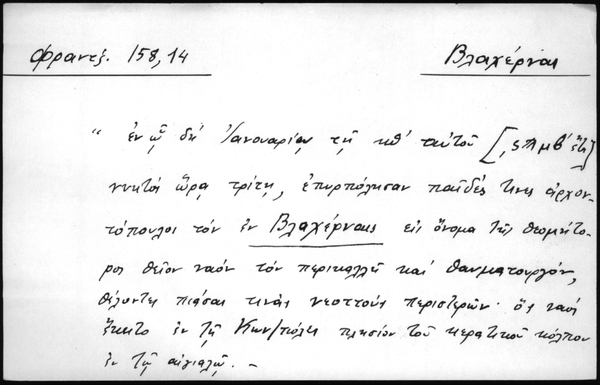 Φραντζ. 158,14
Βλαχέρναι
" ἐν ᾧ δὴ Ἰανουαρίῳ τῇ κθʹ ταὐτοῦ [͵ϛπμβʹ ἔτη]
νυκτὸς ὥρᾳ τρίτῃ, ἐπυρπόλησαν παῖδές τινες ἀρχον-
τόπουλοι τὸν ἐν Βλαχέρναις εἰς ὄνομα τῆς θεομήτο-
ρος θεῖον ναὸν τὸν περικαλλῆ καὶ θαυματουργόν,
θέλοντες πιάσαι τινὰς νεοττοὺς περιστερῶν· ὃς ναὸς
ἔκειτο ἐν τῇ Κων/πόλει πλησίον τοῦ κερατικοῦ κόλπου
ἐν τῷ αἰγιαλῷ. –